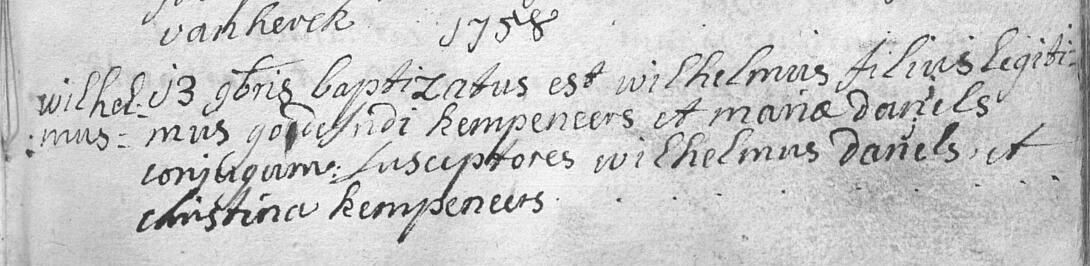 vanherck 1758
wilhel- 13 9bris baptizatus est wilhelmus filius legiti-
:mus:- mus godefridi kempeneers et mariæ daniels
conjugum: susceptores wilhelmus daniels, et
christina kempeneers